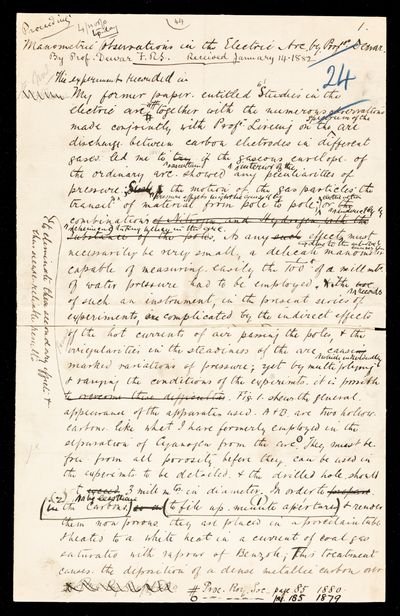 Proceedings
44
1.
Manometric Observations in the Electric Arc, by Profr. Dewar.
By Prof. Dewar F.R.S. Received January 14. 1882
24
The experiments recorded in
My former paper entitled "Studies in the
electric arc" together with the numerous observations
made conjointly with Profr. Liveing on the
spectrum of the
arc
discharge between carbon electrodes in different
gases led me to if the gaseous envelope of
the ordinary arc showed any peculiarities of
pressure the motion of the gas particles the
transit of material from pole to pole, or the
combinations of Nitrogen and Hydrogen with the
substance of the poles. As any such effects must
necessarily be very small, a delicate manometer
capable of measuring easily the of a millmtr.
of water pressure had to be employed. The
records
of such an instrument, in the present series of
experiments, are complicated by the indirect effects
of the hot currents of air passing the poles, & the
irregularities in the steadiness of the arc causing
marked variations of pressure; yet by multiplying
& varying the conditions of the experimts. it is possible
to overcome these difficulties. Fig 1. shews the general
to eliminate these secondary effects &
appearance of the apparatus used. A & B. are two hollow
carbons like what I have formerly employed in the
separation of Cyanogen from the arc. They must be
free from all porosity before they can be used in
the experimts to be detailed, & the drilled hole should
3 millmtr. in diameter. In order to
the carbons to fill up minute apertures & render
them non porous they are placed in a porcelain tube
& heated to a white heat in a current of coal gas
saturated with vapour of Benzole; This treatment
causes the deposition of a dense metallic carbon over
# Proc. Roy. Soc. page 85 1880
1879